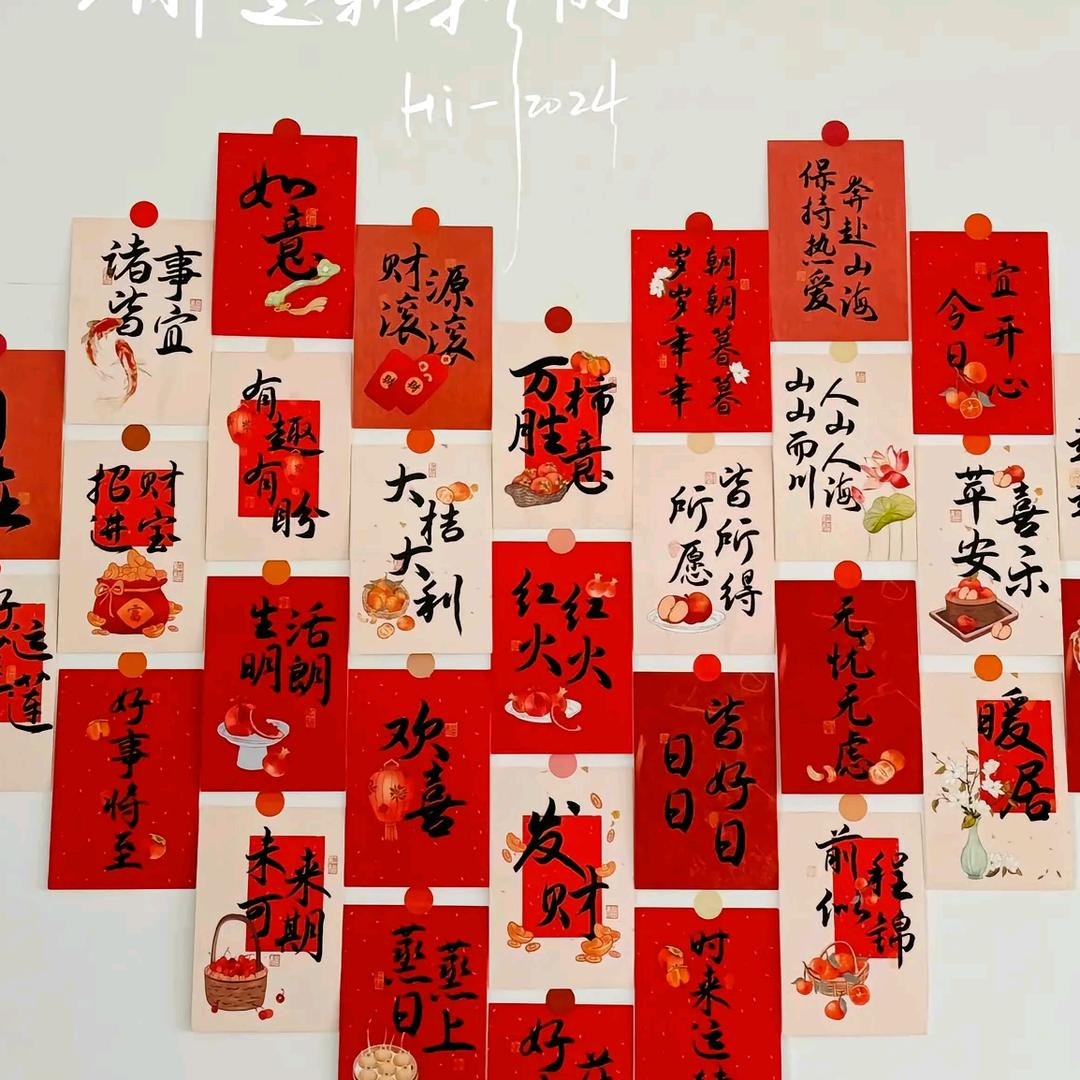 Hi-2024
如意
诸事皆宜
财源滚滚
岁岁年年
朝朝暮暮
保持热爱
奔赴山海
今日宜开心
有趣有盼
万柿胜意
人山人海
山山而川
招财进宝
大桔大利
所愿皆所得
苹安喜乐
生活明朗
红红火火
无忧无虑
好运莲
好事将至
欢喜
日日皆好日
暖居
未来可期
发财
前程似锦
蒸蒸日上
时来运
好